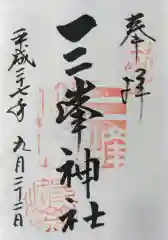 奉拝
一二三峯神社
平成二十七年九月二十二日